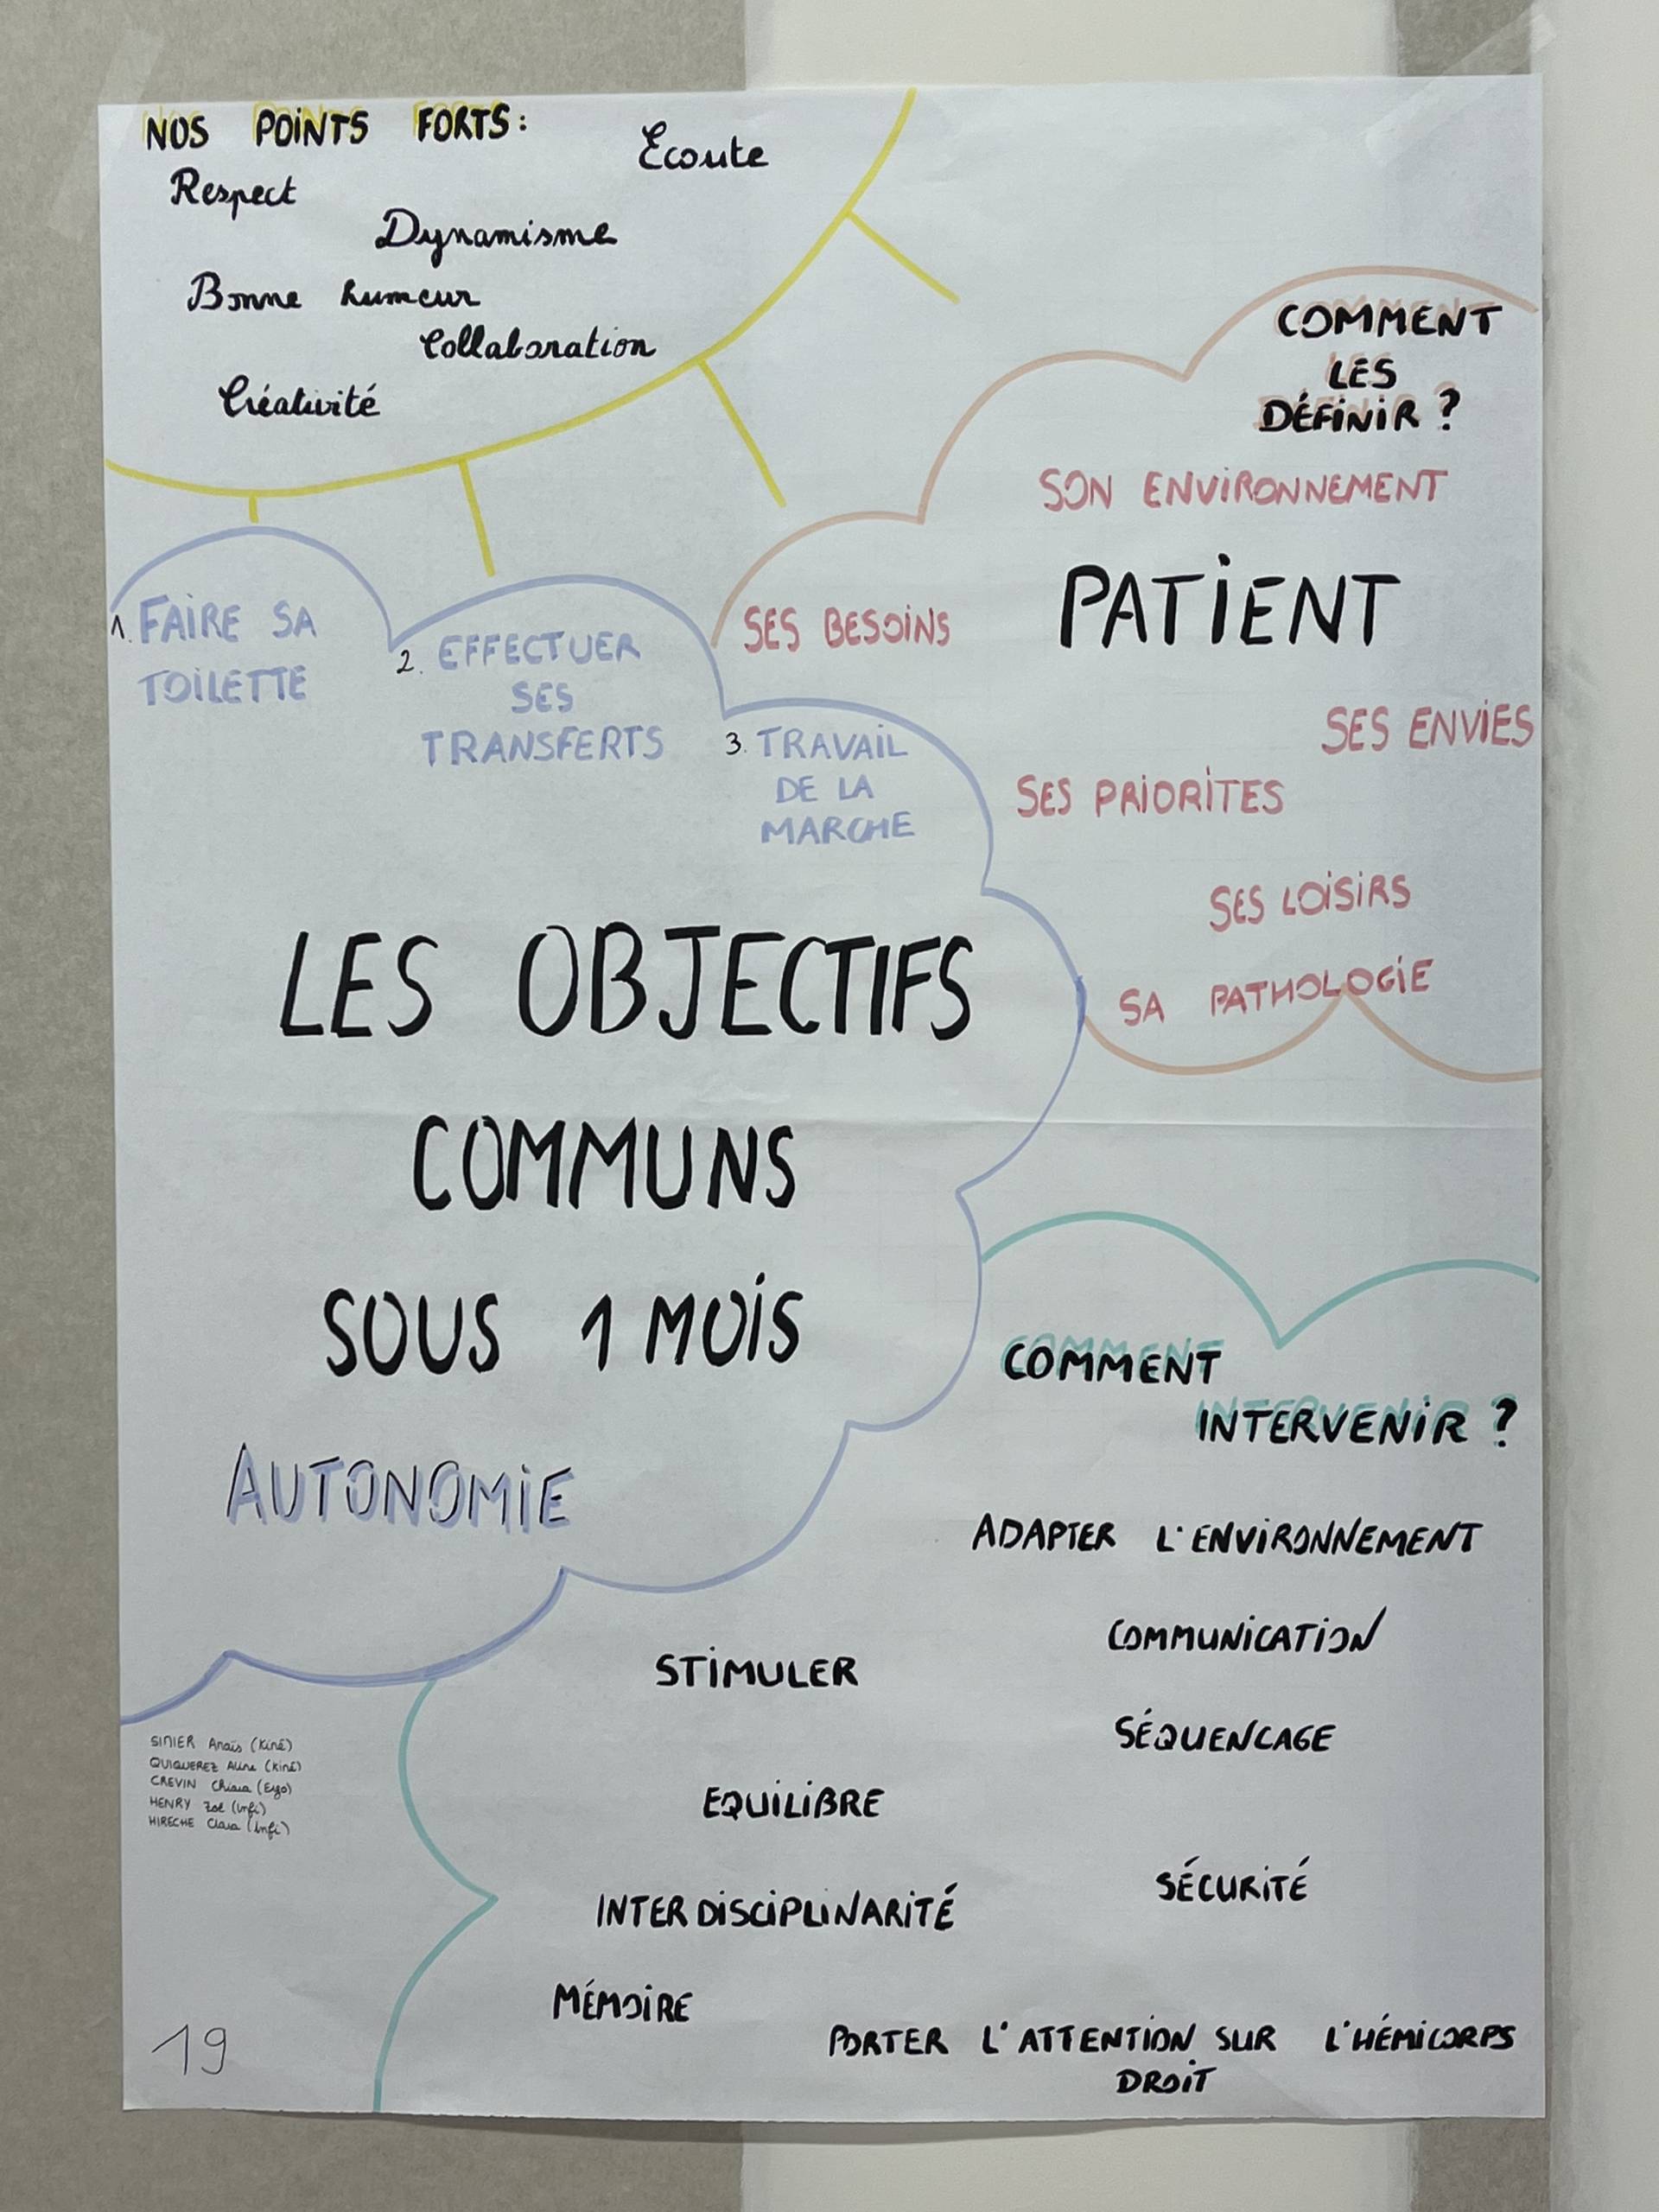 NOS POINTS FORTS:
Ecoute
Respect
Dynamisme
Bonne humeur
Collaboration
Créativité
COMMENT
LES
DÉFINIR ?
SON ENVIRONNEMENT
PATIENT
SES BESOINS
SES ENVIES
SES PRIORITES
SES LOISIRS
SA PATHOLOGIE
1. FAIRE SA
TOILETTE
2. EFFECTUER
SES
TRANSFERTS
3. TRAVAIL
DE LA
MARCHE
LES OBJECTIFS
COMMUNS
SOUS 1 MOIS
AUTONOMIE
COMMENT
INTERVENIR ?
ADAPTER L'ENVIRONNEMENT
COMMUNICATION
STIMULER
SÉQUENCAGE
EQUILIBRE
SÉCURITÉ
INTERDISCIPLINARITÉ
MÉMOIRE
PORTER L'ATTENTION SUR L'HÉMICORPS
DROIT
Anaïs (Kiné)
QUIQUEREZ Aline (Kiné)
CREVIN Chiara (Ergo)
HENRY Zoé (Infi)
HIRECHE Clara (Infi)
19